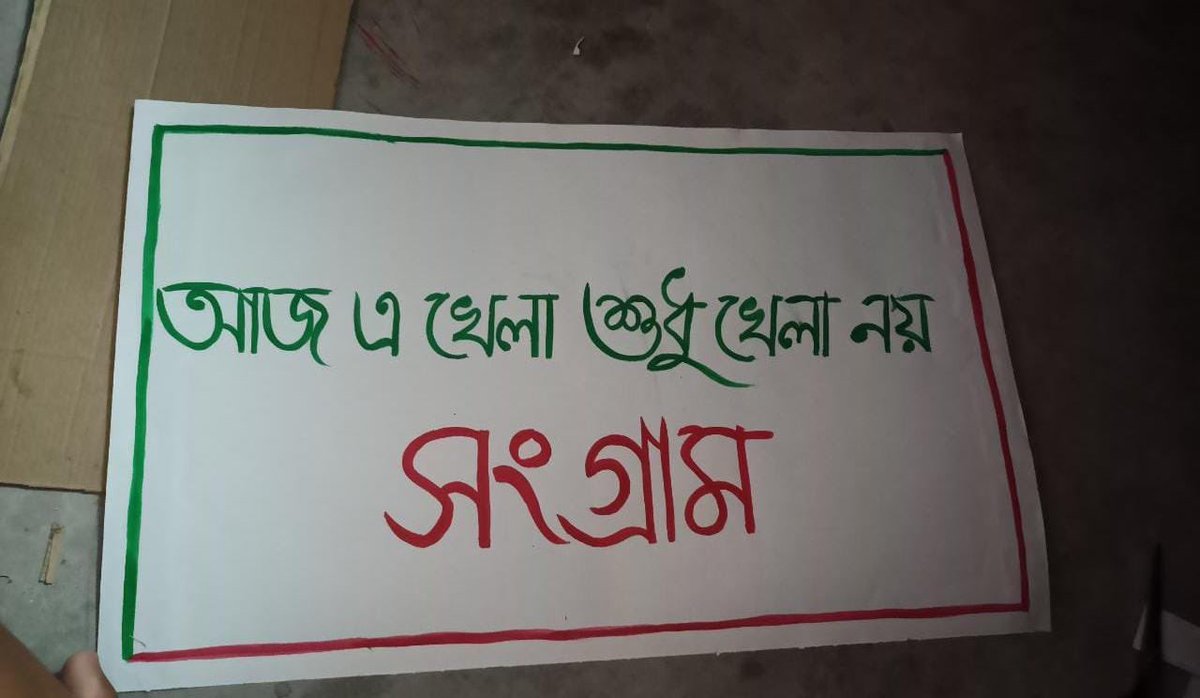 আজ এ খেলা শুধু খেলা নয়
সংগ্রাম